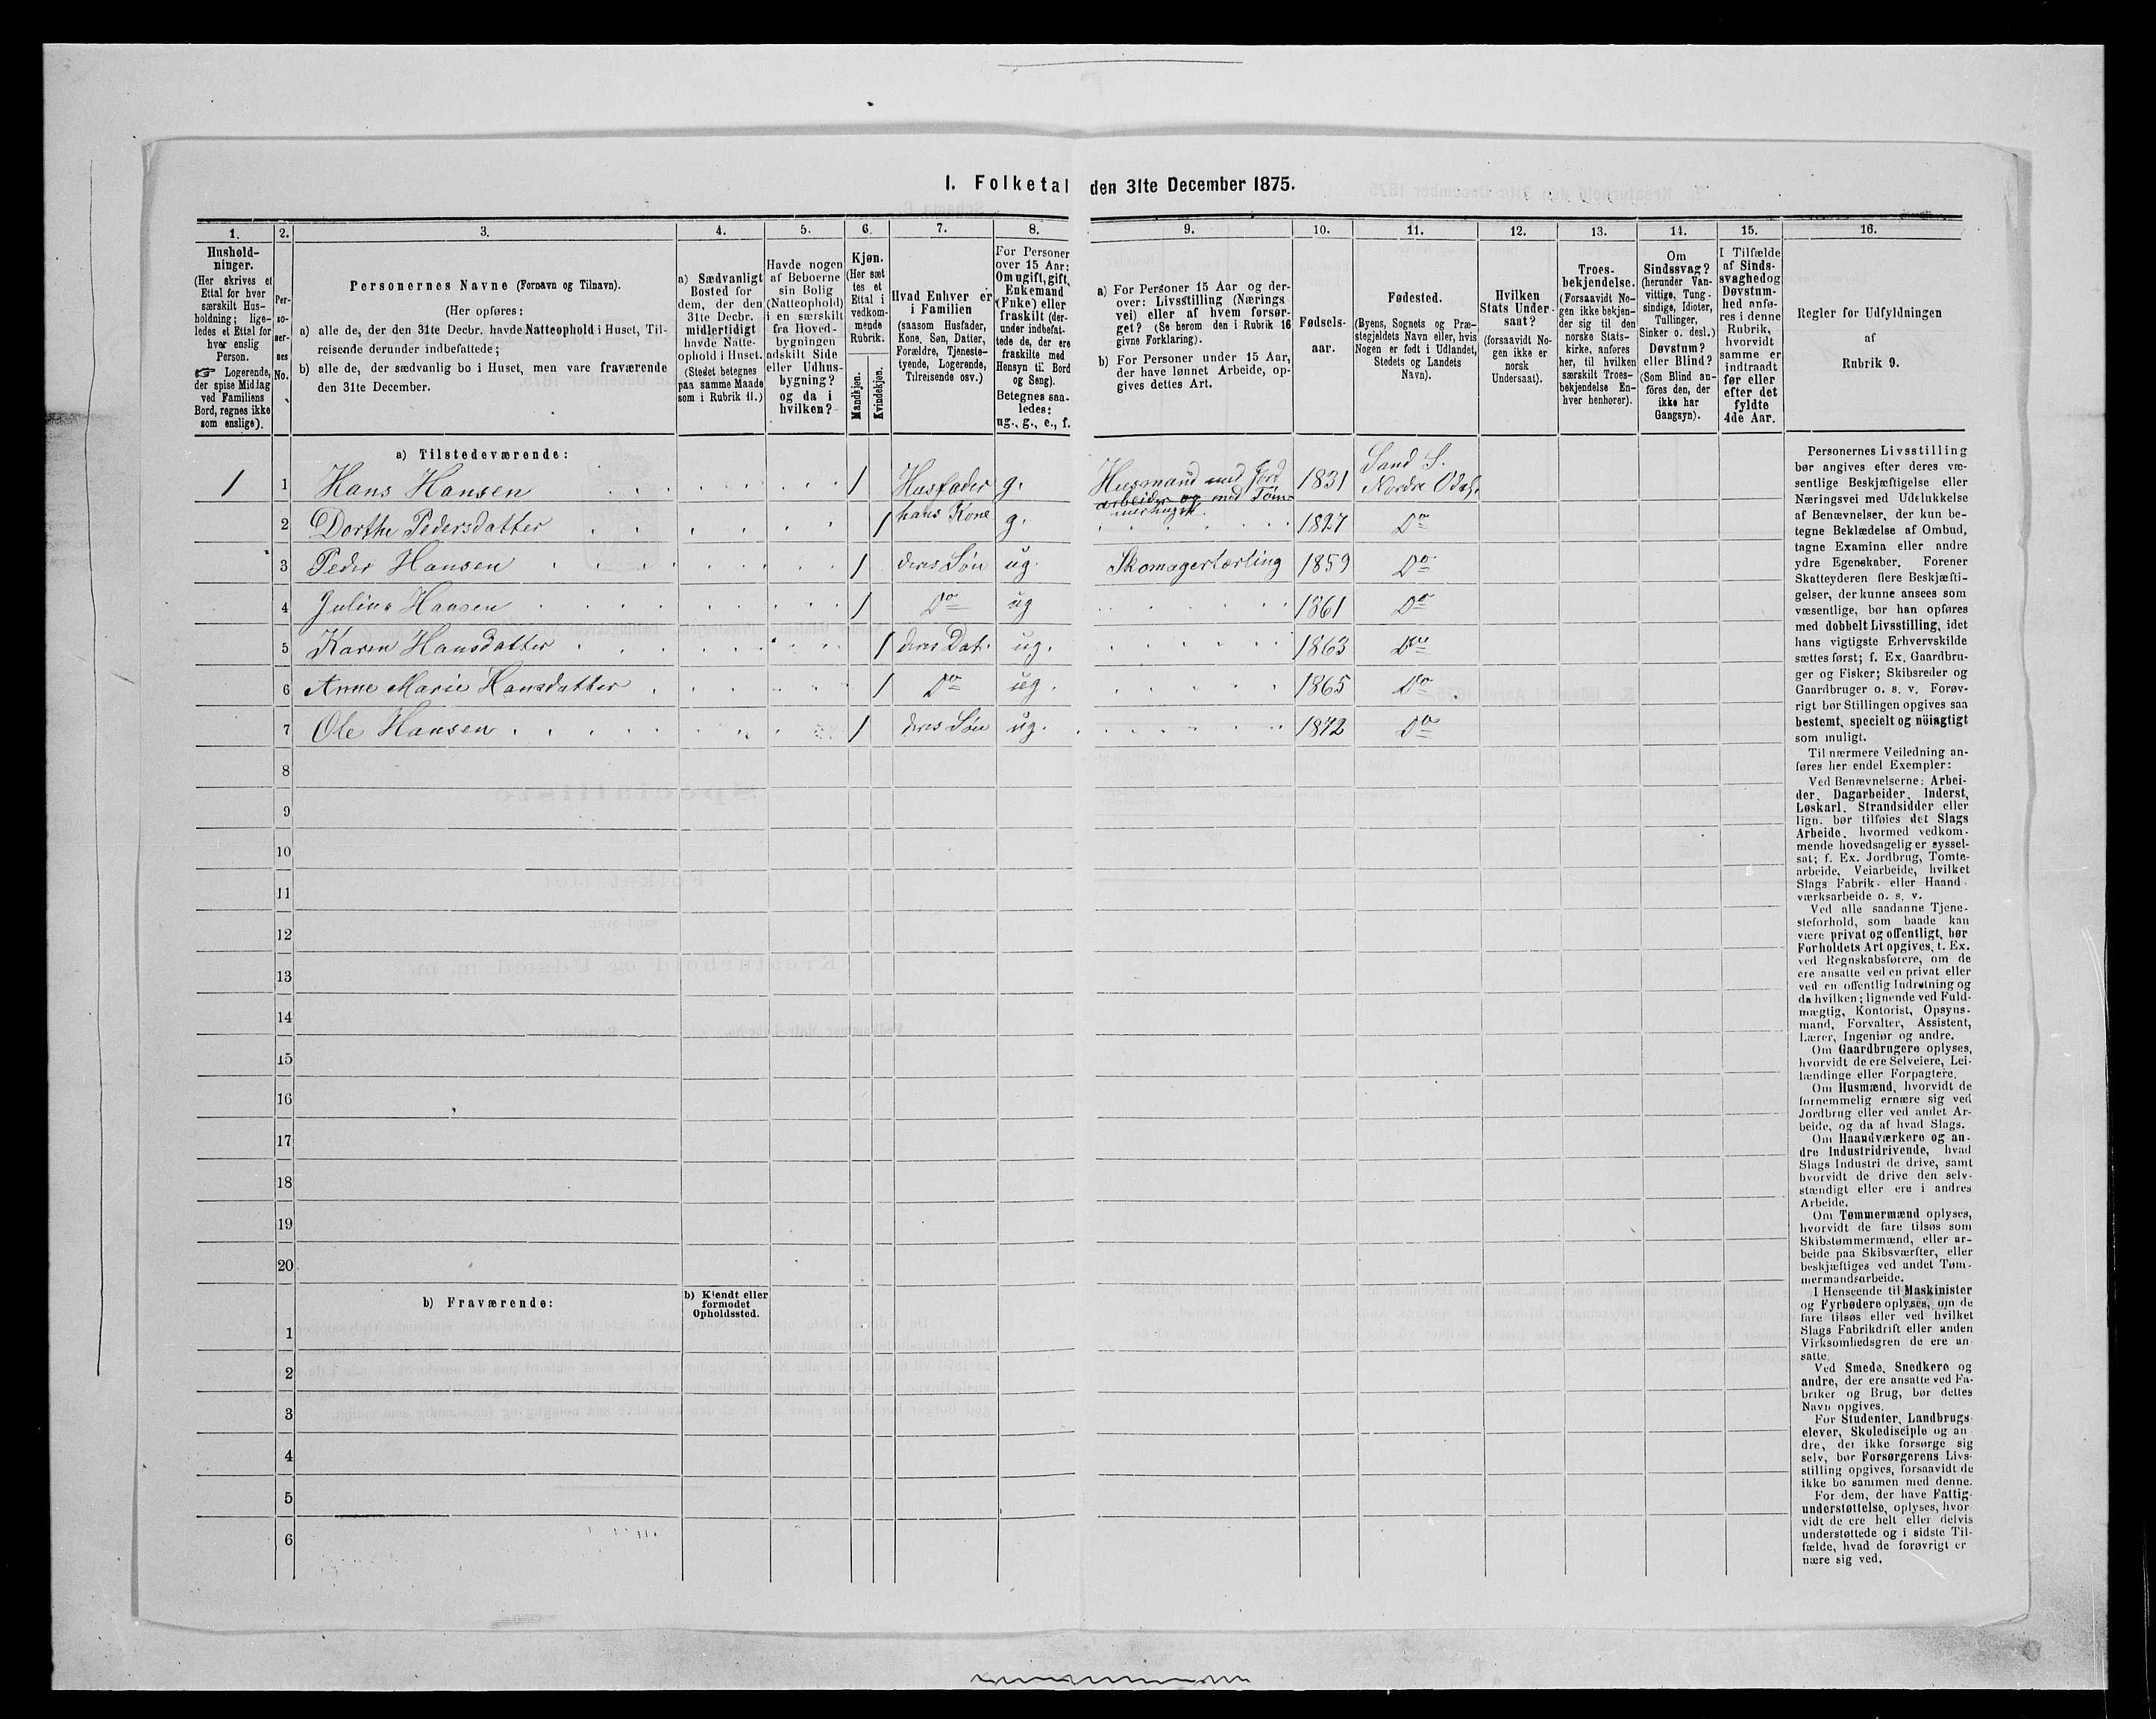 I. Folketal den 31te December 1875.
1. 2. 3. 4. 5. 6. 7. 8. 9. 10. 11. 12. 13. 14. 15. 16.
Hushold-
ninger.
(Her skrives et
Ettal for hver
særskilt Hus-
holdning; lige-
ledes et Ettal for
hver enslig
Person.
☞ Logerende,
der spise Middag
ved Familiens
Bord, regnes ikke
som enslige).
Per-
so-
ner-
nes
No.
Personernes Navne (Fornavn og Tilnavn).
(Her opføres:
a) alle de, der den 31te Decbr. havde Natteophold i Huset, Til-
reisende derunder indbefattede;
b) alle de, der sædvanlig bo i Huset, men vare fraværende
den 31te December.
a) Sædvanligt
Bosted for
dem, der den
31te Decbr.
midlertidigt
havde Natte-
ophold i Huset.
(Stedet betegnes
paa samme Maade
som i Rubrik 11.)
Havde nogen
af Beboerne
sin Bolig
(Natteophold)
i en særskilt
fra Hoved-
bygningen
adskilt Side
eller Udhus-
bygning?
og da i
hvilken?
Kjøn.
(Her sæt
tes et
Ettal i
vedkom-
mende
Rubrik.
Mandkjøn.
Kvindekjøn.
Hvad Enhver er
i Familien
(saasom Husfader,
Kone, Søn, Datter,
Forældre, Tjeneste-
tyende, Logerende,
Tilreisende osv.)
For Personer
over 15 Aar:
Om ugift, gift,
Enkemand
(Enke) eller
fraskilt (der-
under indbefat-
tede de, der ere
fraskilte med
Hensyn til Bord
og Seng).
Betegnes saa-
ledes:
ug., g., e., f.
a) For Personer 15 Aar og der-
over: Livsstilling (Nærings
vei) eller af hvem forsør-
get? (Se herom den i Rubrik 16
givne Forklaring).
b) For Personer under 15 Aar,
der have lønnet Arbeide, op-
gives dettes Art.
Fødsels-
aar.
Fødested.
(Byens, Sognets og Præ-
stegjeldets Navn eller, hvis
Nogen er født i Udlandet,
Stedets og Landets
Navn).
Hvilken
Stats Under-
saat?
(forsaavidt No-
gen ikke er
norsk
Undersaat).
Troes-
bekjendelse.
(Forsaavidt No-
gen ikke bekjen-
der sig til den
norske Stats-
kirke, anføres
her, til hvilken
særskilt Troes-
bekjendelse En-
hver henhører).
Om
Sindssvag?
(herunder Van-
vittige, Tung-
sindige, Idioter,
Tullinger,
Sinker o. desl.)
Døvstum?
eller Blind?
(Som Blind an-
føres den, der
ikke har
Gangsyn).
I Tilfælde
af Sinds-
svaghed og
Døvstum-
hed anfø-
res i denne
Rubrik,
hvorvidt
samme er
indtraadt
før eller
efter det
fyldte
4de Aar.
Regler for Udfyldningen
af
Rubrik 9.
a) Tilstedeværende:
1 1 Hans Hansen 1 Husfader g. Husmand med Jord 1831 Sand S.
Nordre Odal.
arbeider og med Tøm-
merhugst.
2 Dorthe Pedersdatter 1 hans Kone g. 1827 Do
3 Peder Hansen 1 deres Søn ug. Skomagerlærling 1859 Do
4 Julius Hansen 1 Do ug 1861 Do
5 Karen Hansdatter 1 deres Dat. ug. 1863 Do
6 Anne Marie Hansdatter 1 Do ug. 1865 Do
7 Ole Hansen 1 deres Søn ug. 1872 Do
8
9
10
11
12
13
14
15
16
17
18
19
20
b) Fraværende:
b) Kjendt eller
formodet
Opholdssted.
1
2
3
4
5
6
Personernes Livsstilling
bør angives efter deres væ-
sentlige Beskjæftigelse eller
Næringsvei med Udelukkelse
af Benævnelser, der kun be-
tegne Beklædelse af Ombud,
tagne Examina eller andre
ydre Egenskaber. Forener
Skatteyderen flere Beskjæfti-
gelser, der kunne ansees som
væsentlige, bør han opføres
med dobbelt Livsstilling, idet
hans vigtigste Erhvervskilde
sættes først; f. Ex. Gaardbru-
ger og Fisker; Skibsreder og
Gaardbruger o. s. v. Forøv-
rigt bør Stillingen opgives saa
bestemt, specielt og nöiagtigt
som muligt.
Til nærmere Veiledning an-
føres her endel Exempler:
Ved Benævnelserne: Arbei-
der, Dagarbeider, Inderst,
Løskarl, Strandsidder eller
lign. bør tilføies det Slags
Arbeide, hvormed vedkom-
mende hovedsagelig er syssel-
sat; f. Ex. Jordbrug, Tomte-
arbeide, Veiarbeide, hvilket
Slags Fabrik- eller Haand-
værksarbeide o. s. v.
Ved alle saadanne Tjene-
steforhold, som baade kan
være privat og offentligt, bør
Forholdets Art opgives, f. Ex.
ved Regnskabsførere, om de
ere ansatte ved en privat eller
ved en offentlig Indretning og
da hvilken; lignende ved Fuld-
mægtig, Kontorist, Opsyns-
mand, Forvalter, Assistent,
Lærer, Ingeniør og andre.
Om Gaardbrugere oplyses,
hvorvidt de ere Selveiere, Lei-
lændinge eller Forpagtere.
Om Husmænd, hvorvidt de
fornemmelig ernære sig ved
Jordbrug eller ved andet Ar-
beide, og da af hvad Slags.
Om Haandværkere og an-
dre Industridrivende, hvad
Slags Industri de drive, samt
hvorvidt de drive den selv-
stændigt eller ere i andres
Arbeide.
Om Tømmermænd oplyses,
hvorvidt de fare tilsøs som
Skibstømmermænd, eller ar-
beide paa Skibsværfter, eller
beskjæftiges ved andet Tøm-
mermandsarbeide.
I Henseende til Maskinister
og Fyrbødere oplyses, om de
fare tilsøs eller ved hvilket
Slags Fabrikdrift eller anden
Virksomhedsgren de ere an-
satte.
Ved Smede, Snedkere og
andre, der ere ansatte ved Fa-
briker og Brug, bør dettes
Navn opgives.
For Studenter, Landbrugs-
elever, Skoledisciple og an-
dre, der ikke forsørge sig
selv, bør Forsørgerens Livs-
stilling opgives, forsaavidt de
ikke bo sammen med denne.
For dem, der have Fattig-
understøttelse, oplyses, hvor-
vidt de ere helt eller delvis
understøttede og i sidste Til-
fælde, hvad de forøvrigt er
nære sig ved.